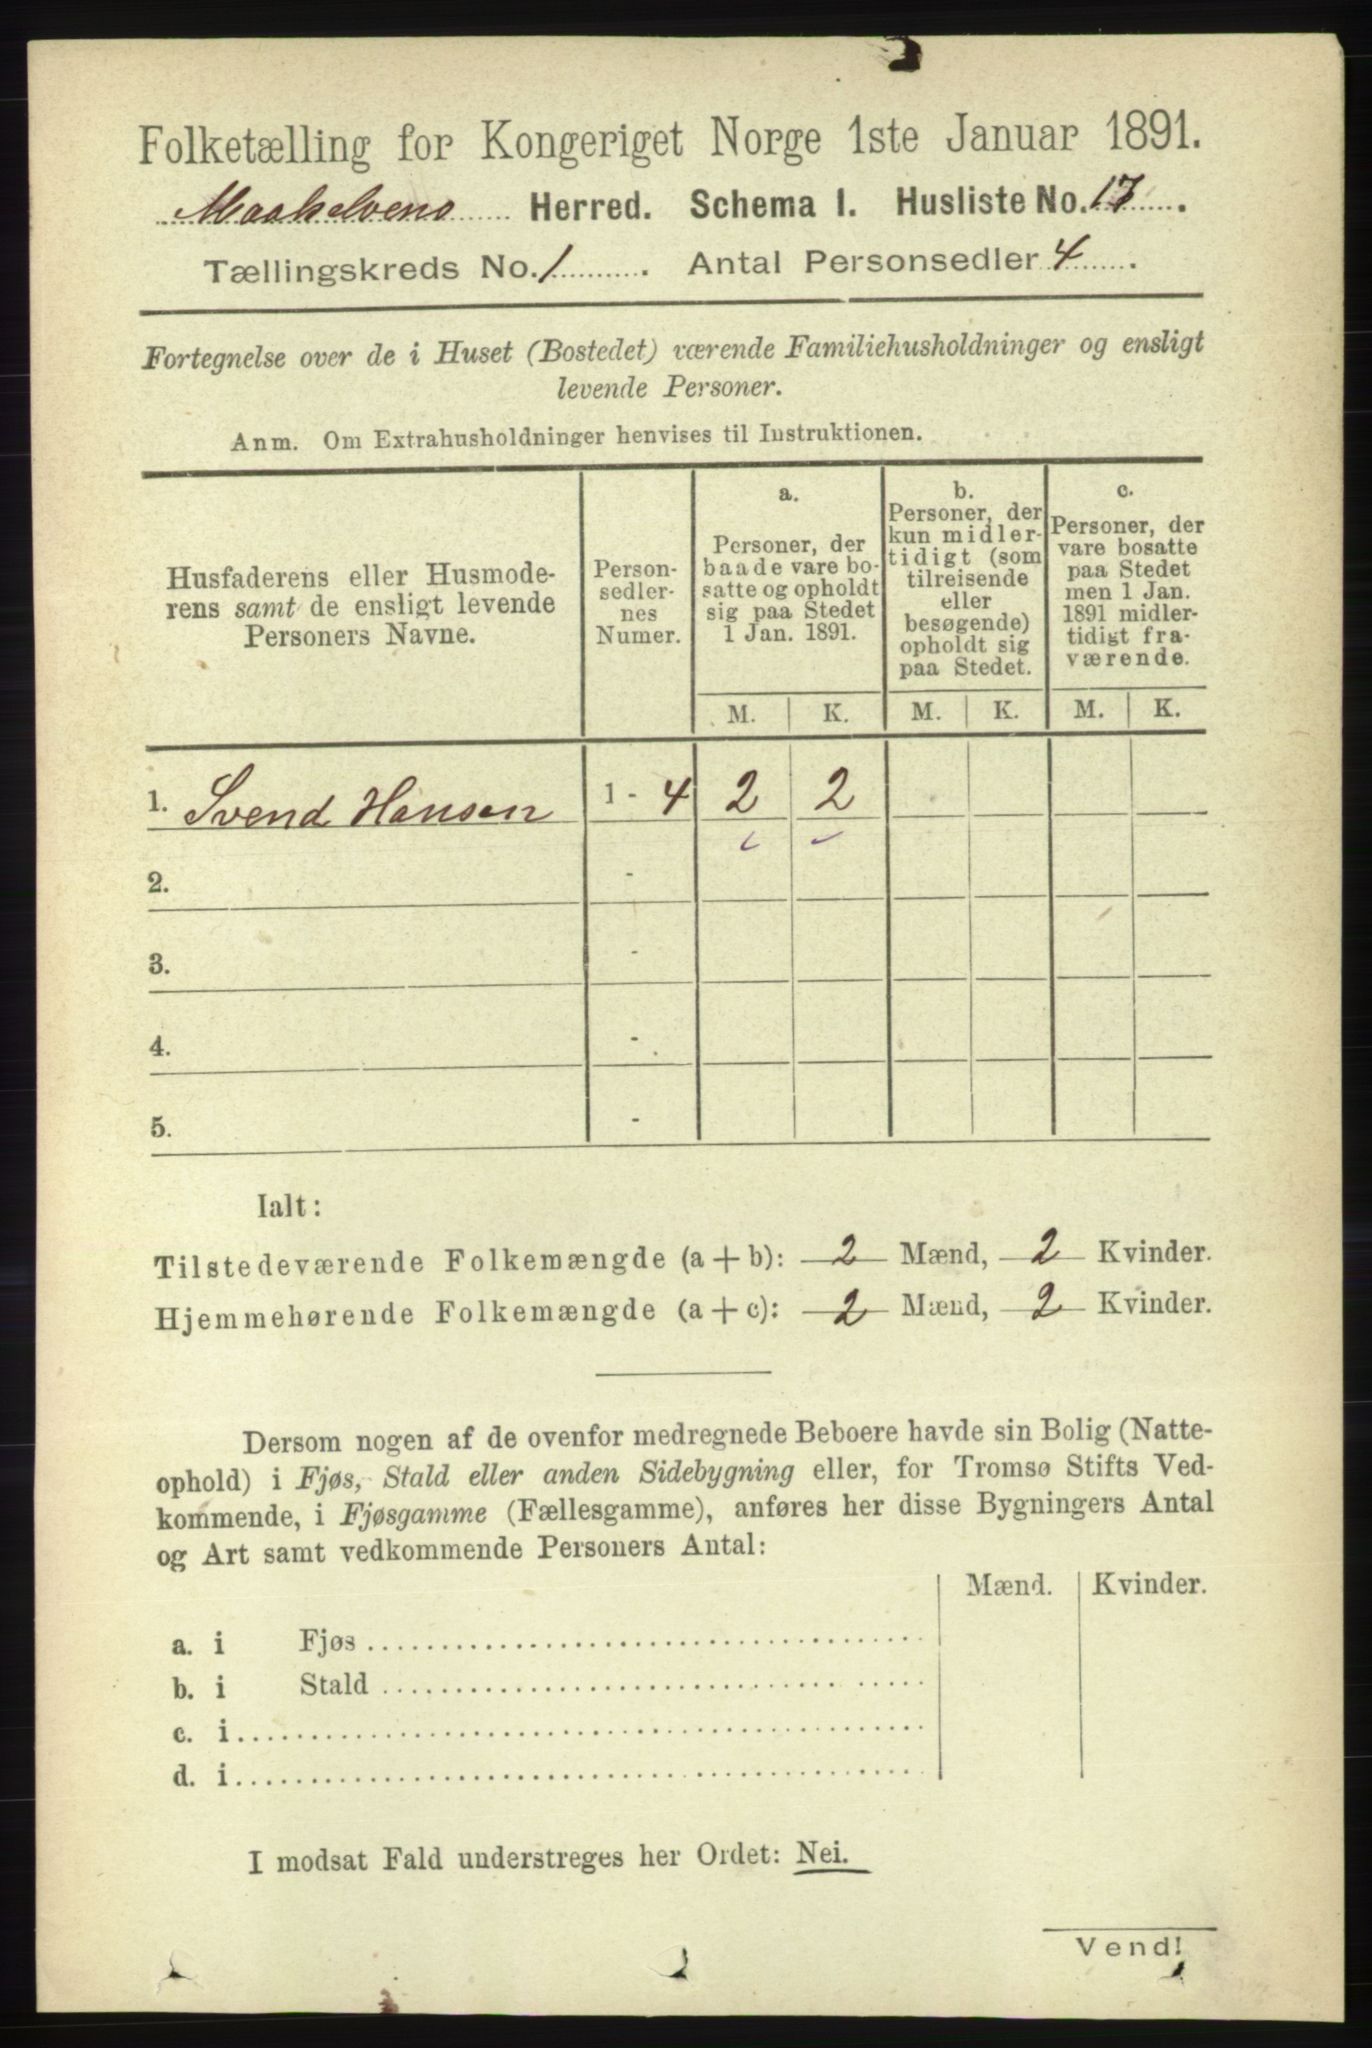 Folketælling for Kongeriget Norge 1ste Januar 1891.
Maaselvens Herred. Schema I. Husliste No. 17.
Tællingskreds No. 1. Antal Personsedler 4.
Fortegnelse over de i Huset (Bostedet) værende Familiehusholdninger og ensligt
levende Personer.
Anm. Om Extrahusholdninger henvises til Instruktionen.
Husfaderens eller Husmode-
rens samt de ensligt levende
Personers Navne.
Person-
sedler-
nes
Numer.
a.
Personer, der
baade vare bo-
satte og opholdt
sig paa Stedet
1 Jan. 1891.
b.
Personer, der
kun midler-
tidigt (som
tilreisende
eller
besøgende)
opholdt sig
paa Stedet.
c.
Personer, der
vare bosatte
paa Stedet
men 1 Jan.
1891 midler-
tidigt fra-
værende.
M. K. M. K. M. K.
1. Svend Hansen 1 - 4 2 2
2. -
3. -
4. -
5. -
Ialt:
Tilstedeværende Folkemængde (a + b): 2 Mænd, 2 Kvinder.
Hjemmehørende Folkemængde (a + c): 2 Mænd, 2 Kvinder.
Dersom nogen af de ovenfor medregnede Beboere havde sin Bolig (Natte-
ophold) i Fjøs, Stald eller anden Sidebygning eller, for Tromsø Stifts Ved-
kommende, i Fjøsgamme (Fællesgamme), anføres her disse Bygningers Antal
og Art samt vedkommende Personers Antal:
Mænd. Kvinder.
a. i Fjøs
b. i Stald
c. i
d. i
I modsat Fald understreges her Ordet: Nei.
Vend!